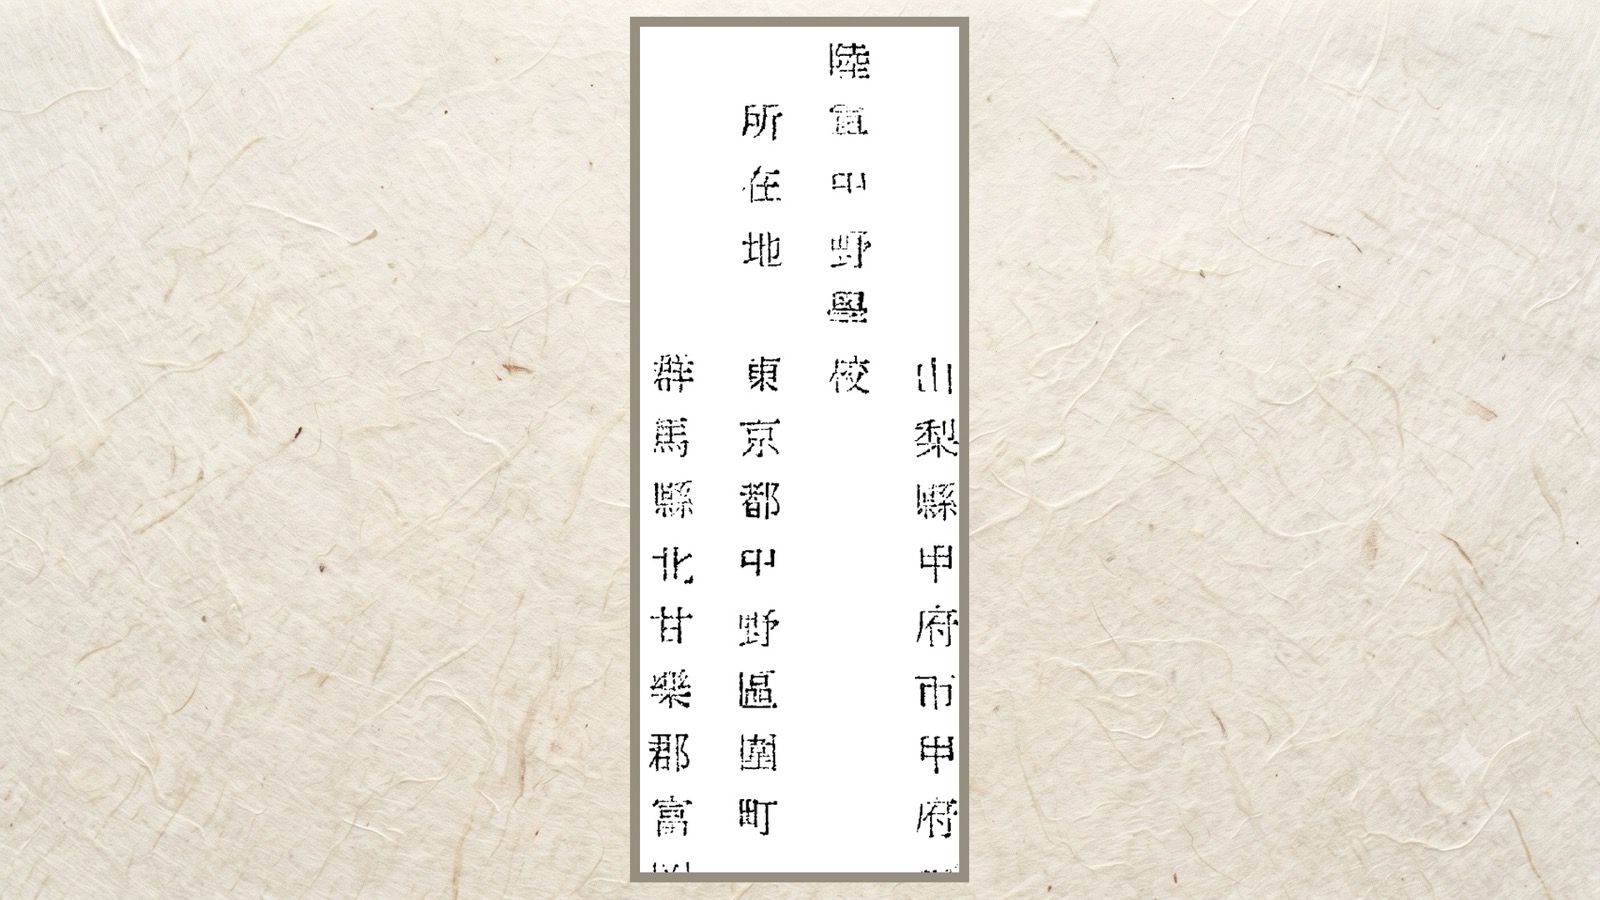 山梨縣甲府市甲府
陸軍中野學校
所在地 東京都中野區圍町
群馬縣北甘樂郡富